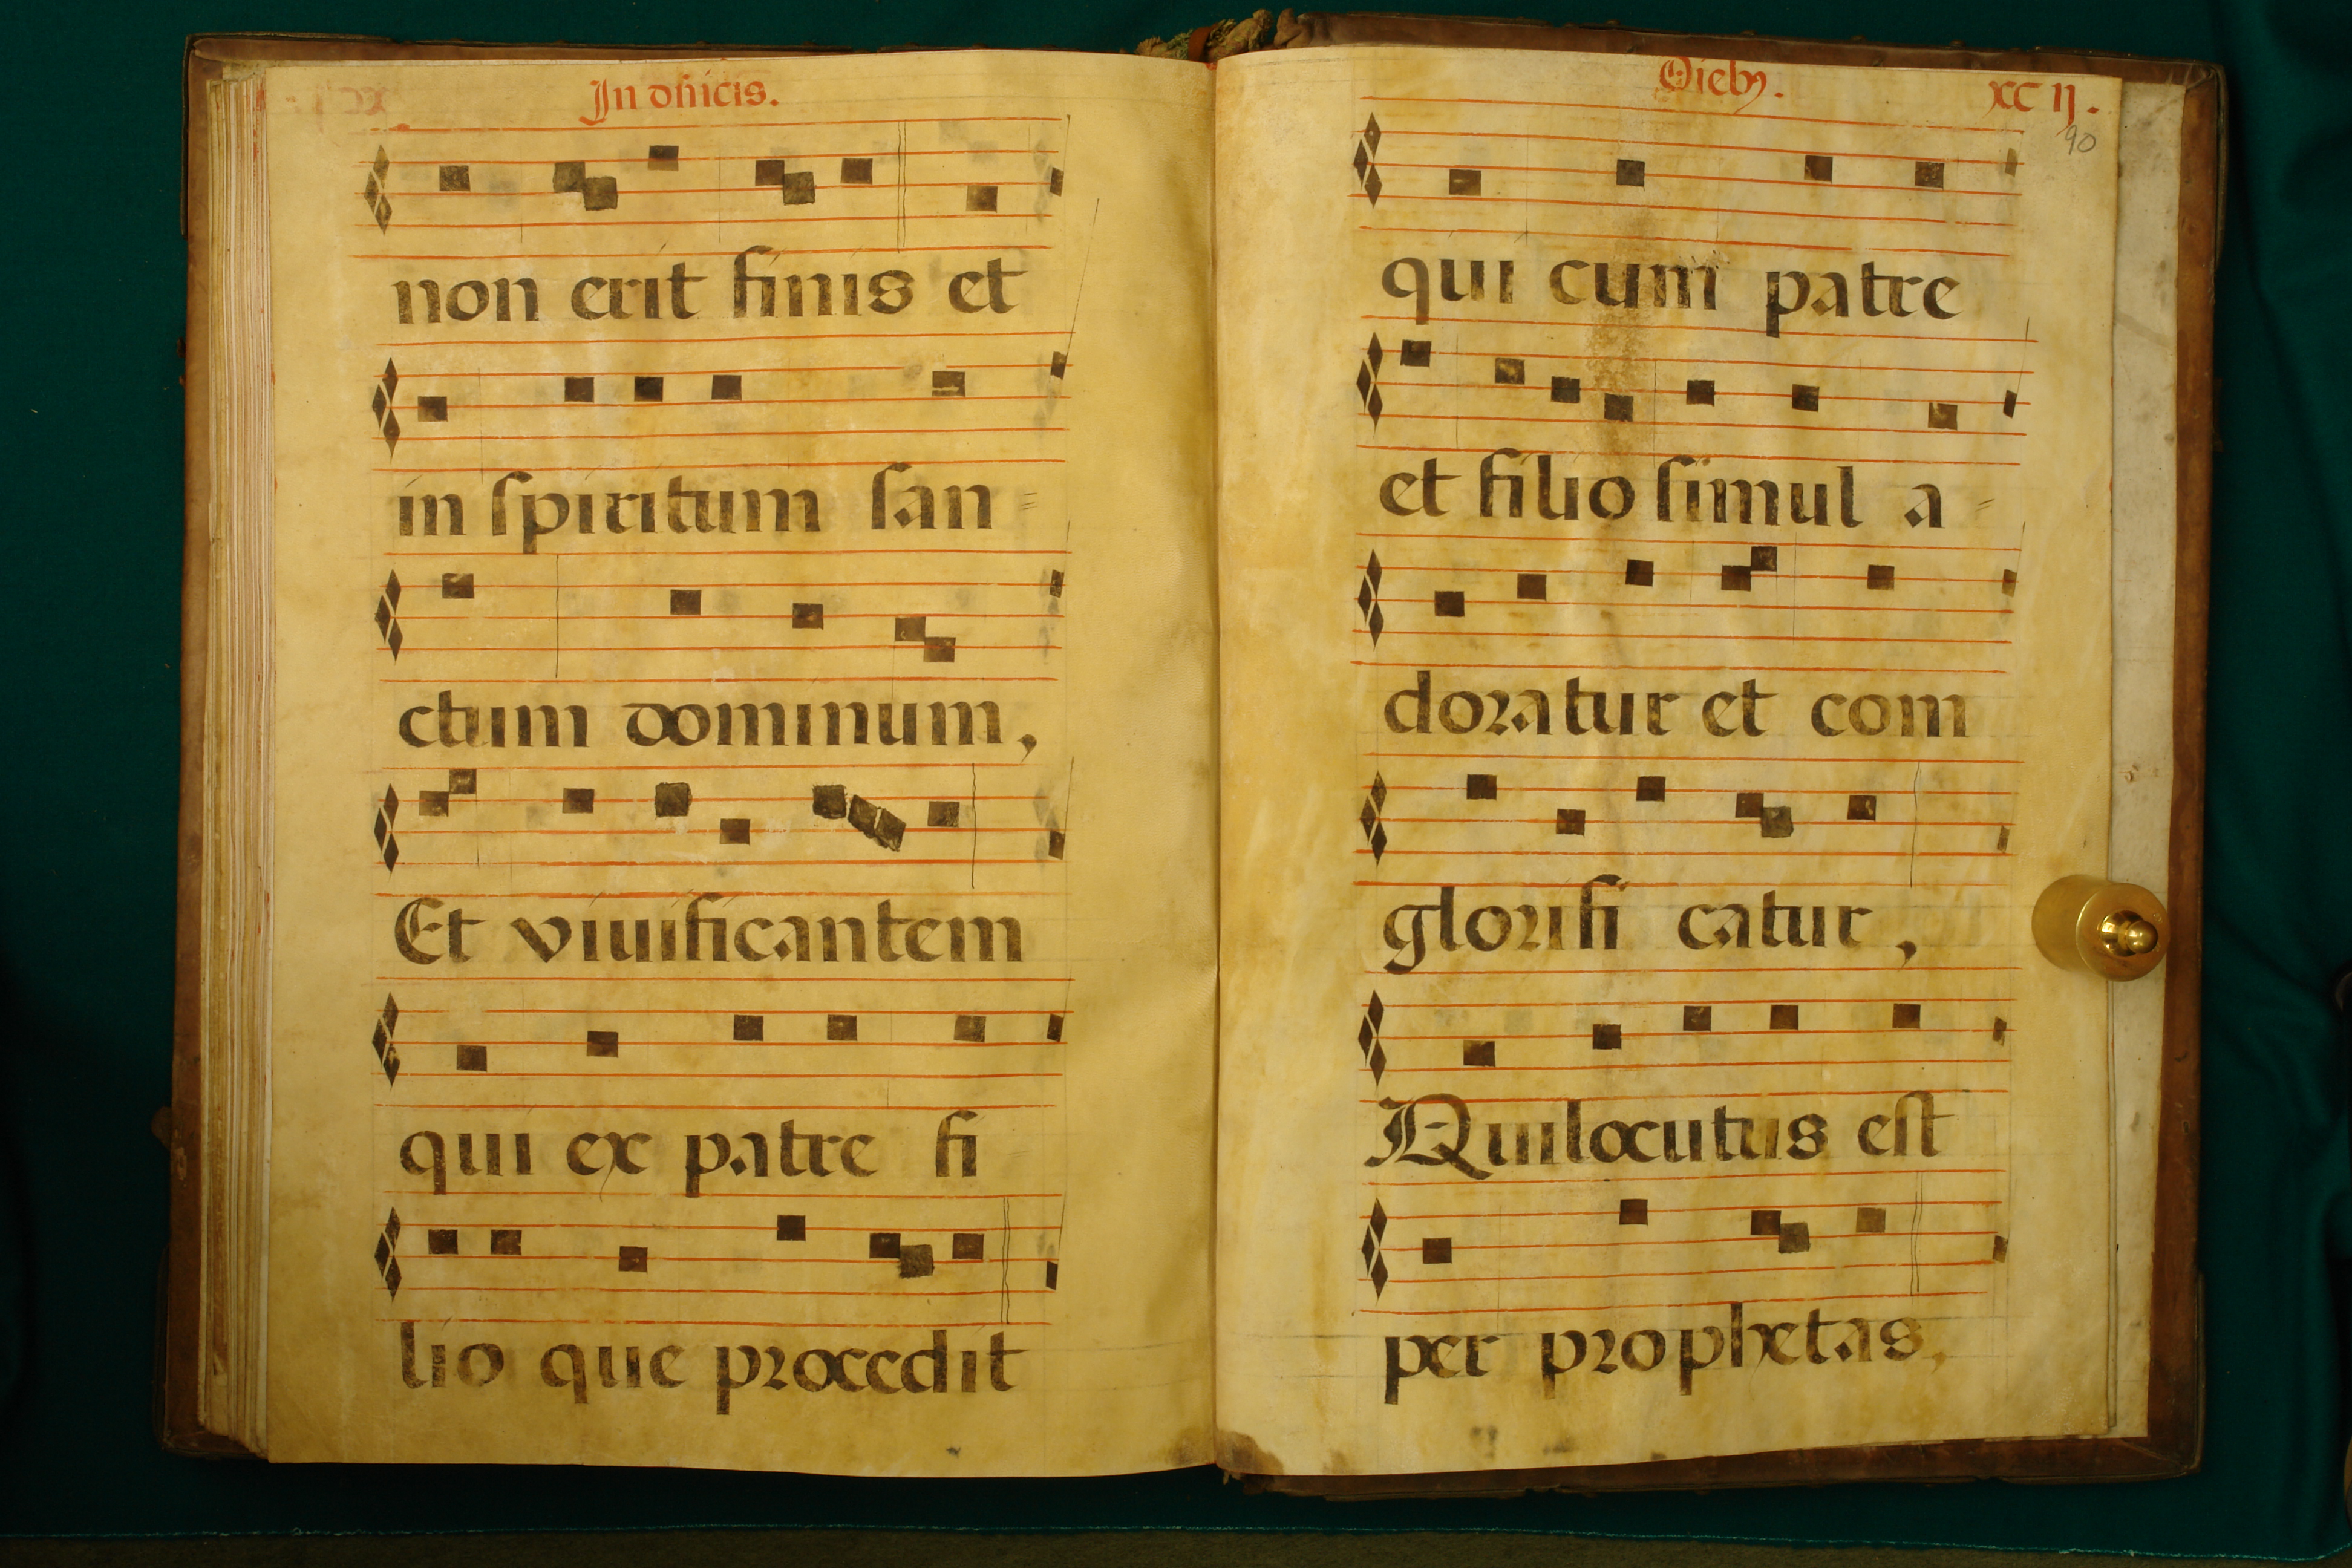 In dñicis.
non erit finis et
in ſpiritum ſan=
ctum dominum,
Et viuificantem
qui ex patre fi
lio que procedit
Dieb9.
XC IJ.
90
qui cum patre
et filio ſimul a=
doꝛatur et com
gloꝛifi catur,
Qui locutus eſt
per pꝛophetas,